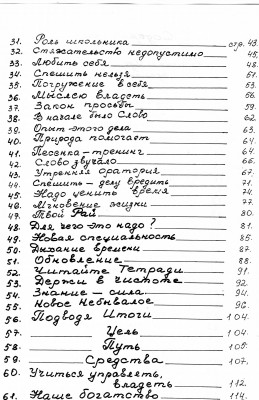 31. Роль школьника стр. 43.
32. Стяжательство недопустимо 45.
33. Любить себя 48.
34. Спешить нельзя 51.
35. Погружение в себя 53.
36. Мыслею владеть 56.
37. Закон просьбы 59.
38. В начале было Слово 62.
39. Опыт-этого дела 63.
40. Природа помогает 64.
41. Песенка-тренинг 64.
42. Слово звучало 66.
43. Утренняя оратория 67.
44. Спешить-делу вредить 71.
45. Надо ценить время 74.
46. Мгновение жизни 77.
47. Твой Рай 80.
48. Для чего это надо? 81.
49. Новая специальность 85.
50. Дыхание времени 87.
51. Обновление 88.
52. Читайте Тетради 91.
53. Держи в чистоте 92.
54. Знание-сила 94.
55. Новое Небывалое 96.
56. Подводя Итоги 104.
57. Цель 104.
58. Путь 105.
59. Средства 107.
60. Учиться управлять,
владеть 112.
61. Наше богатство 114.